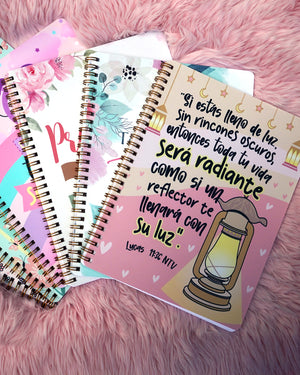 "Si estas lleno de luz,
sin rincones oscuros,
entonces toda tu vida
SERÁ RADIANTE
como si un
reflector te
llenará con
SU LUZ".
Lucas 11:36 NTV